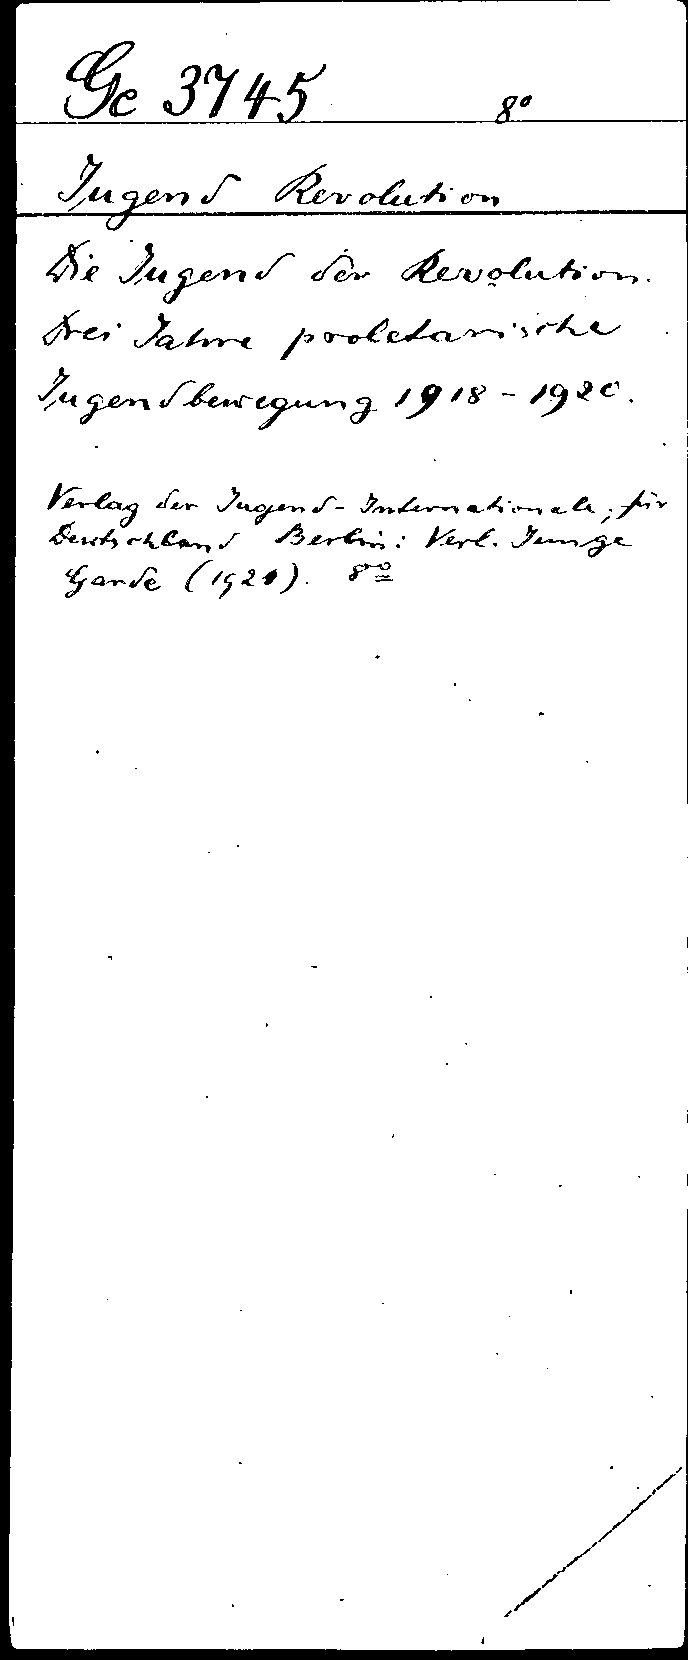 Gc 3745 8°
Jugend Revolution
Die Jugend der Revolution.
Drei Jahre proletarische
Jugendbewegung 1918 - 1920.
Verlag der Jugend-Internationale; für
Deutschland Berlin: Verl. Junge
Garde (1921). 8°